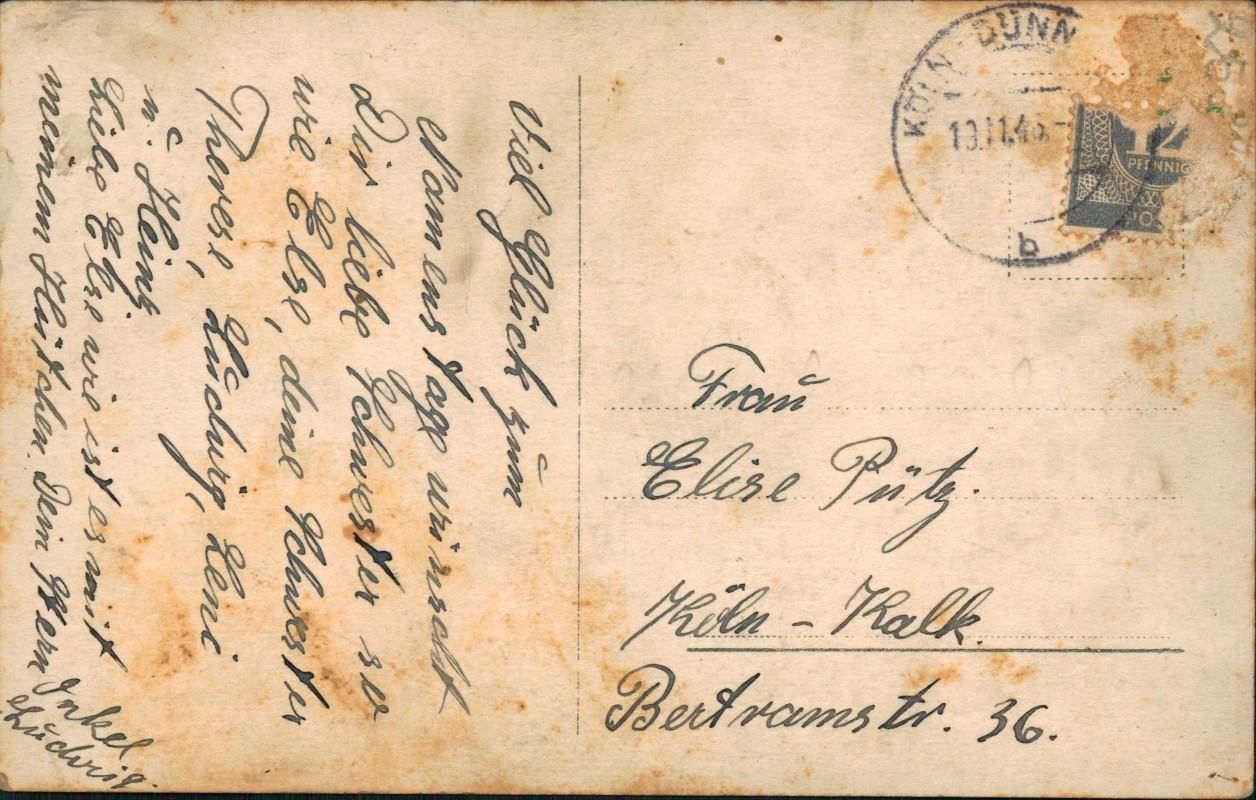 Viel Glück zum
Namenstage wünscht
Dir liebe Schwester so
wie Else, deine Schwester
Therese, Ludwig, Leni
u. Heinz
Liebe Else wie ist es mit
meinem Hütchen Dein
Onkel
Ludwig.
KÖLN-DÜNN
b
12
PFENNIG
Frau
Elise Pütz.
Köln - Kalk.
Bertramstr. 36.